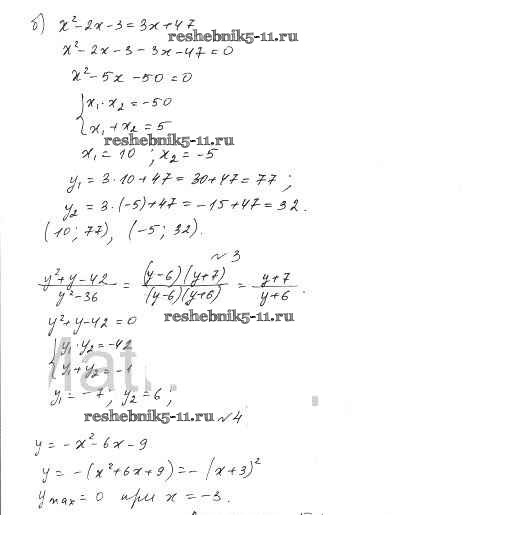 б) x²-2x-3=3x+47
reshebnik5-11.ru
x²-2x-3-3x-47=0
x²-5x-50=0
{x₁·x₂=-50
x₁+x₂=5
reshebnik5-11.ru
x₁=10; x₂=-5
y₁=3·10+47=30+47=77;
y₂=3·(-5)+47=-15+47=32.
(10; 77), (-5; 32).
№3
(y²+y-42)/(y²-36) = ((y-6)(y+7))/((y-6)(y+6)) = (y+7)/(y+6).
reshebnik5-11.ru
y²+y-42=0
{y₁·y₂=-42
y₁+y₂=-1
y₁=-7; y₂=6;
reshebnik5-11.ru №4
y=-x²-6x-9
y=-(x²+6x+9)=-(x+3)²
y max=0 при x=-3.